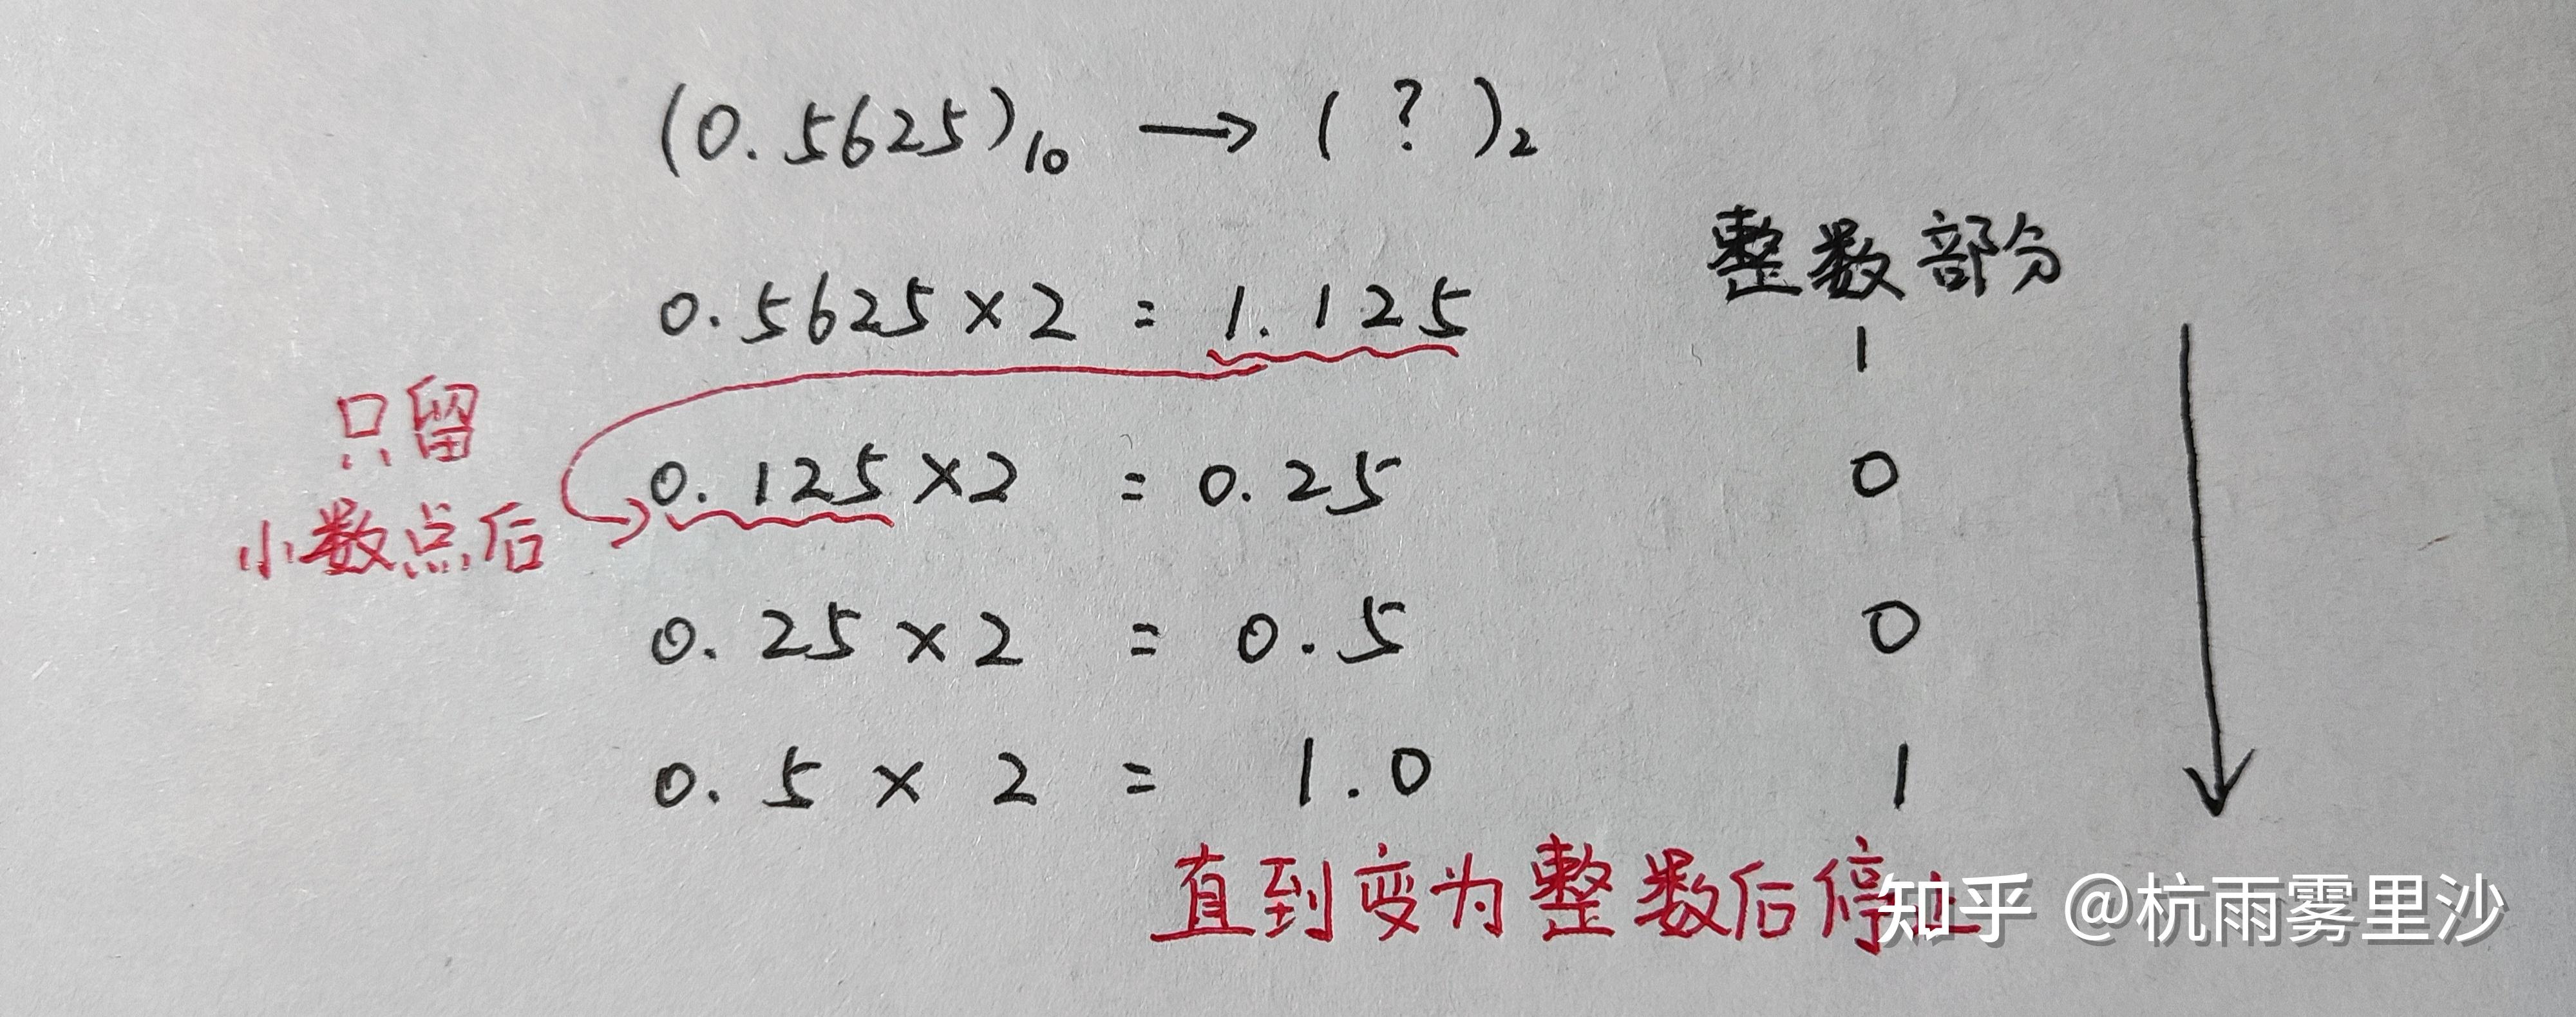 (0.5625)₁₀ → ( ? )₂
整数部分
0.5625×2 = 1.125 1
只留
小数点后
0.125×2 = 0.25 0
0.25×2 = 0.5 0
0.5×2 = 1.0 1
直到变为整数后停止
知乎 @杭雨雾里沙